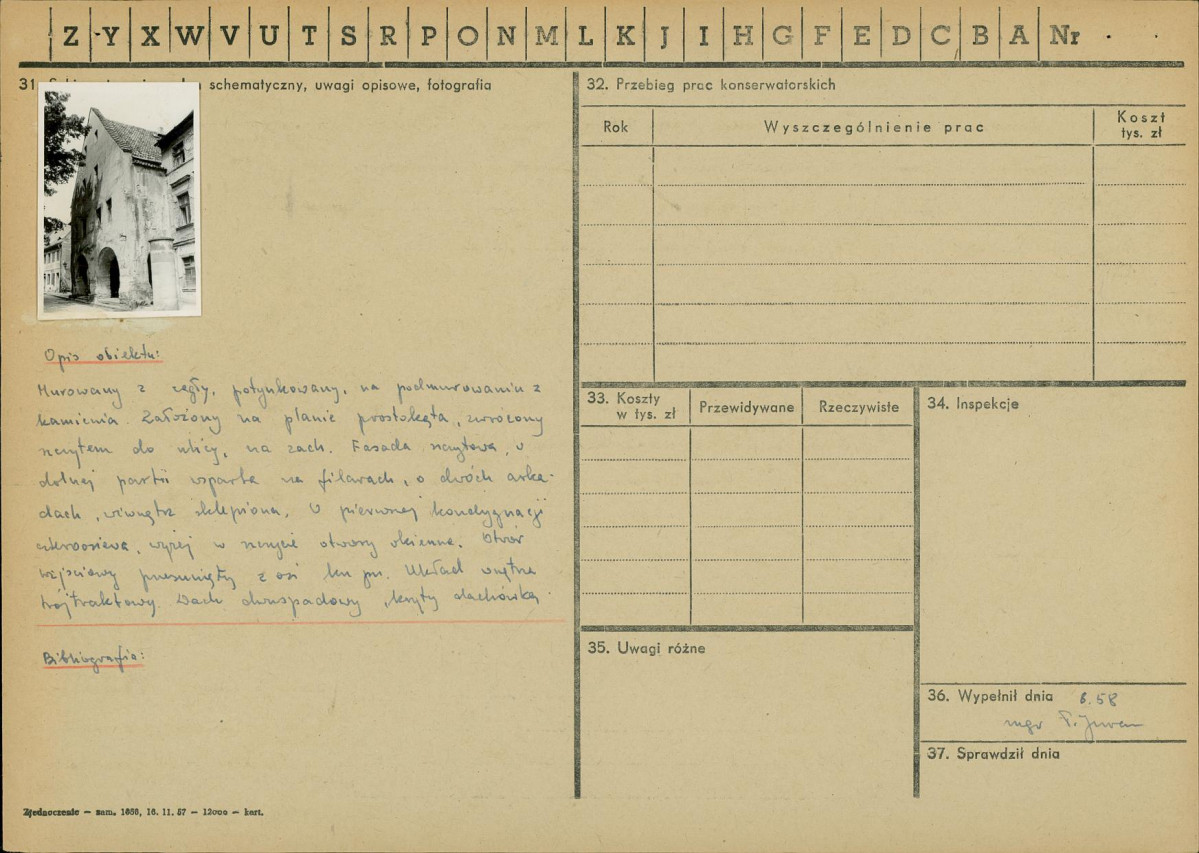 Z Y X W V U T S R P O N M L K J I H G F E D C B A Nr
31. schematyczny, uwagi opisowe, fotografia
Opis obiektu:
Murowany z cegły, potynkowany, na podmurowaniu z
kamienia. Założony na planie prostokąta, zwrócony
szczytem do ulicy, na zach. Fasada szczytowa, w
dolnej partii wsparta na filarach, o dwóch arka-
dach, wewnątrz sklepiona. W pierwszej kondygnacji
czteroosiowa, wyżej w szczycie otwory okienne. Otwór
wejściowy przesunięty z osi ku pn. Układ wnętrza
trójtraktowy. Dach dwuspadowy, kryty dachówką.
Bibliografia:
Zjednoczenie — zam. 1666, 16. 11. 57 — 12000 — kart.
32. Przebieg prac konserwatorskich
Rok Wyszczególnienie prac Koszt tys. zł
33. Koszty w tys. zł Przewidywane Rzeczywiste
34. Inspekcje
35. Uwagi różne
36. Wypełnił dnia 8.58
mgr
37. Sprawdził dnia